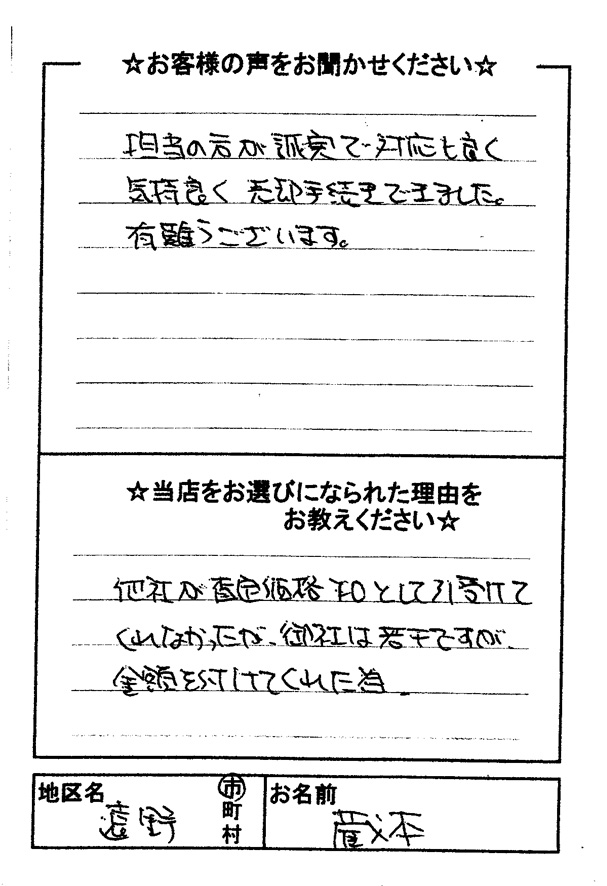 ☆お客様の声をお聞かせください☆
担当の方が誠実で対応も良く
気持良く売却手続きできました。
有難うございます。
☆当店をお選びになられた理由を
お教えください☆
他社が査定価格¥0として引受けて
くれなかったが、御社は若干ですが、
金額を付けてくれた為
地区名
遠野
市
町
村
お名前
蔵本